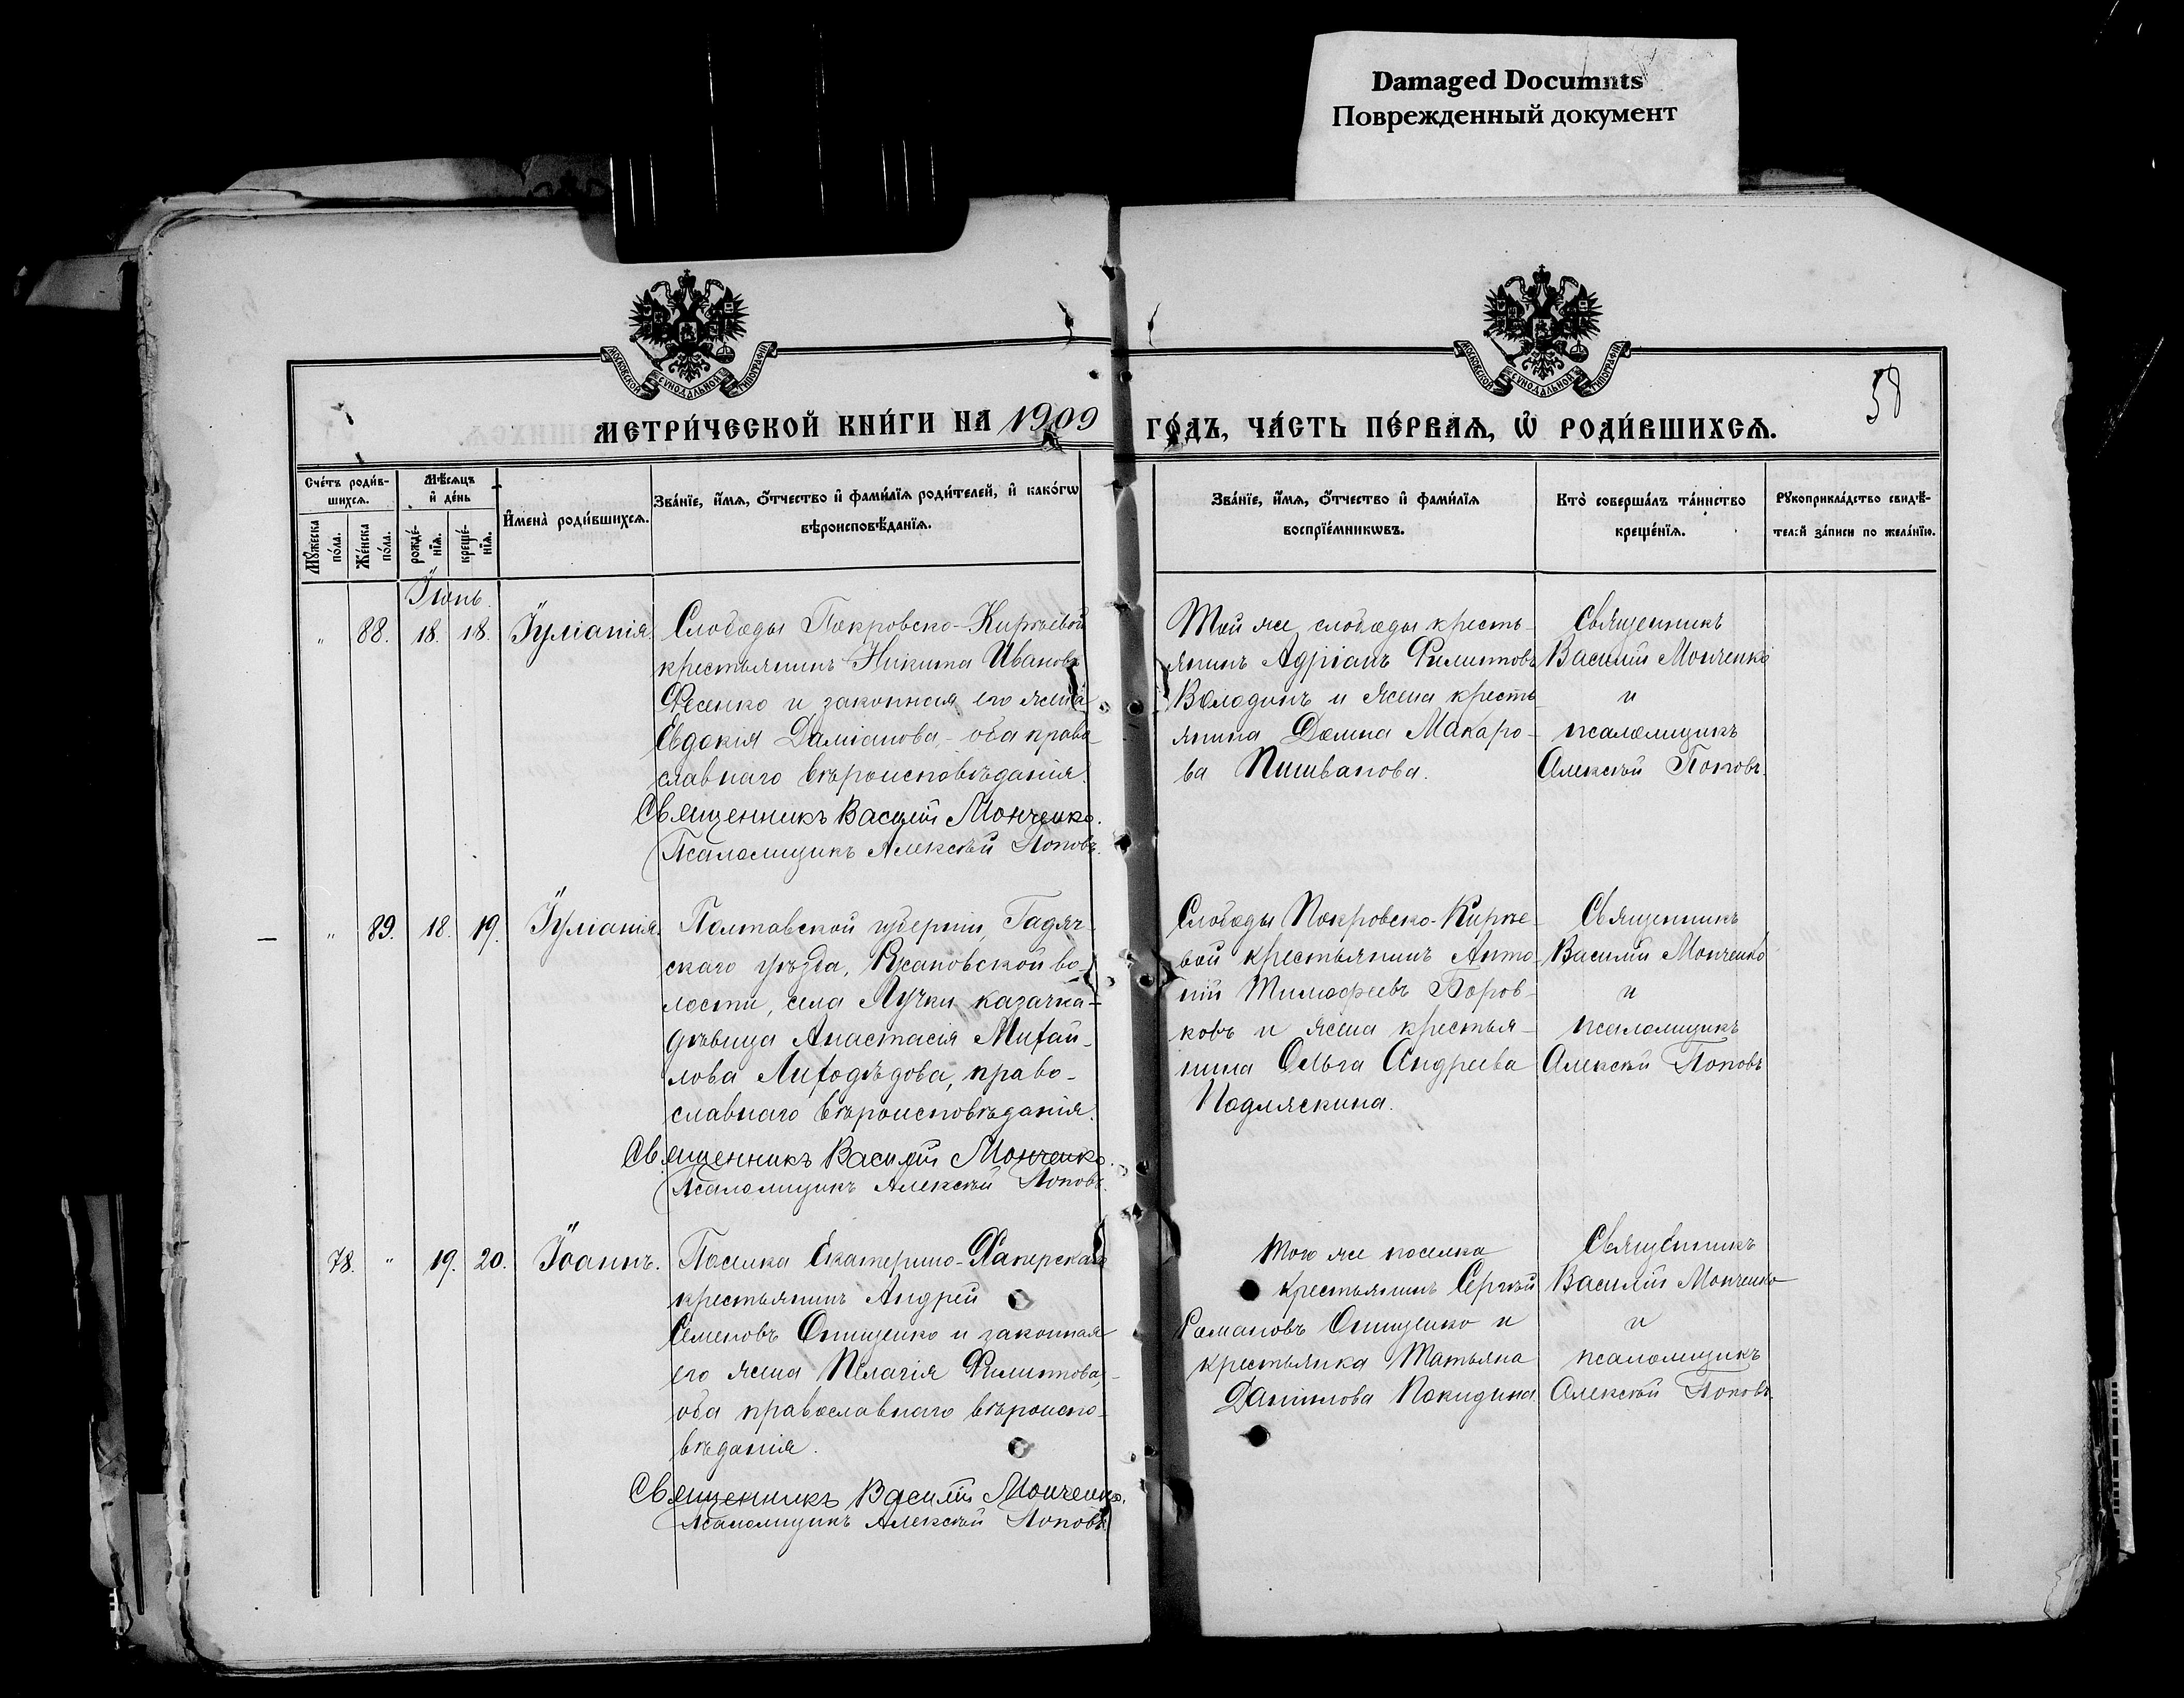 Damaged Documnts
Поврежденный документ
МОСКОВСКОЙ СѴНОДАЛЬНОЙ ТИПОГРАФІИ
МОСКОВСКОЙ СѴНОДАЛЬНОЙ ТИПОГРАФІИ
58
МЕТРИ́ЧЕСКОЙ КНИ́ГИ НА 1909 ГО́ДЪ, ЧА́СТЬ ПЕ́РВАѦ, Ѡ҆ РОДИ́ВШИХСѦ.
Сче́тъ роди́в-
шихсѧ.
Мꙋ́жеска по́ла.
Же́нска по́ла.
Мѣ́сѧцъ
и҆ де́нь
рожде́-
нїѧ.
креще́-
нїѧ.
И҆мена̀ роди́вшихсѧ.
Зва́нїе, и҆́мѧ, ѻ҆́тчество и҆ фами́лїѧ роди́телей, и҆ како́гѡ
вѣроисповѣ́данїѧ.
Зва́нїе, и҆́мѧ, ѻ҆́тчество и҆ фами́лїѧ
воспрїе́мникѡвъ.
Кто̀ соверша́лъ та́инство
креще́нїѧ.
Рꙋкоприкла́дство свидѣ́-
тел:й за́писи по жела́нїю.
Іюнь.
" 88. 18. 18. Іуліанія
Слободы Покровско-Кирѣевой
крестьянинъ Никита Ивановъ
Фесенко и законная его жена
Евдокія Даміанова, - оба право
славнаго вѣроисповѣданія.
Священникъ Василій Монченко.
Псаломщикъ Алексѣй Поповъ.
Той же слободы кресть-
янинъ Адріанъ Филиповъ
Володинъ и жена кресть
янина Домна Макаро-
ва Пишванова.
Священникъ
Василій Монченко
и
псаломщикъ
Алексѣй Поповъ.
" 89. 18. 19. Іуліанія.
Полтавской губерніи, Гадяч-
скаго уѣзда, Русановской во-
лости, села Лучки казачка-
дѣвица Анастасія Михай-
лова Лиходѣдова, право-
славнаго вѣроисповѣданія.
Священникъ Василій Монченко.
Псаломщикъ Алексѣй Поповъ.
Слободы Покровско-Кирѣе-
вой крестьянинъ Анто-
ній Тимофеевъ Боров-
ковъ и жена крестья-
нина Ольга Андреева
Подляскина.
Священникъ
Василій Монченко
и
псаломщикъ
Алексѣй Поповъ
78. " 19. 20. Іоаннъ.
Поселка Екатерино-Хаперскаго
крестьянинъ Андрей
Семеновъ Онищенко и законная
его жена Пелагія Филипова,
оба православнаго вѣроиспо-
вѣданія.
Священникъ Василій Монченко.
Псаломщикъ Алексѣй Поповъ.
Того же поселка
крестьянинъ Сергѣй
Романовъ Онищенко и
крестьянка Татьяна
Даніилова Покидина
Священникъ
Василій Монченко
и
псаломщикъ
Алексѣй Поповъ.